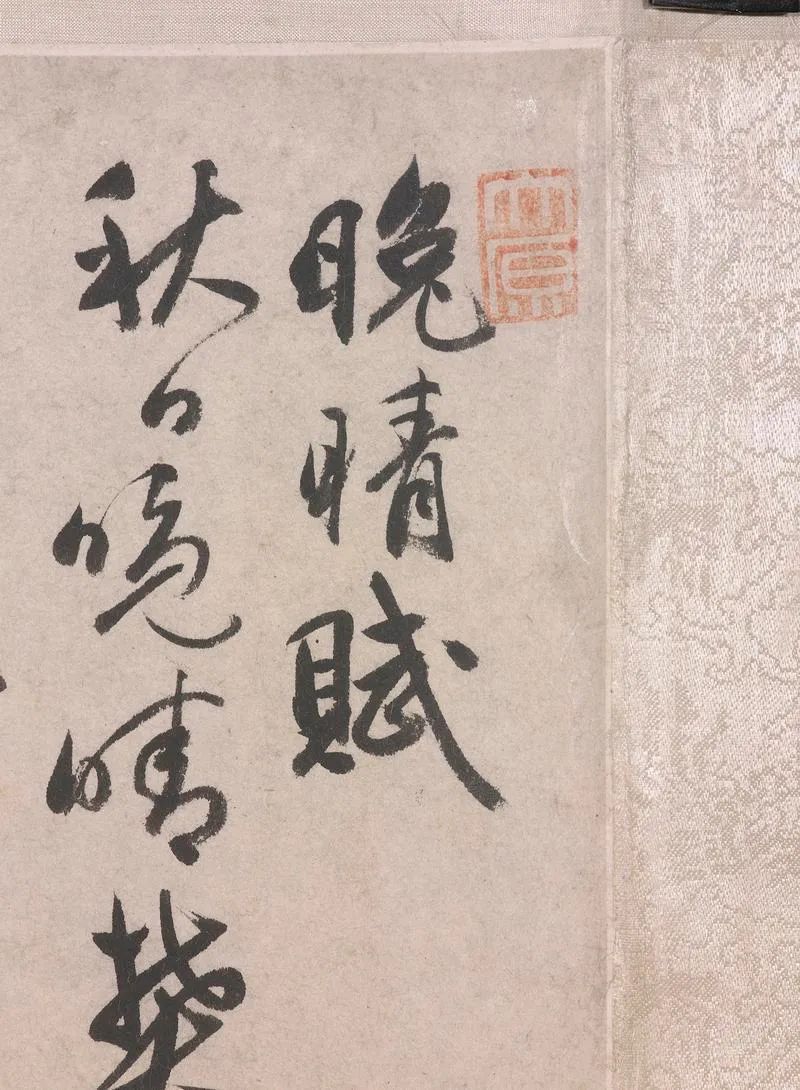 晚晴賦
秋日晚晴樊